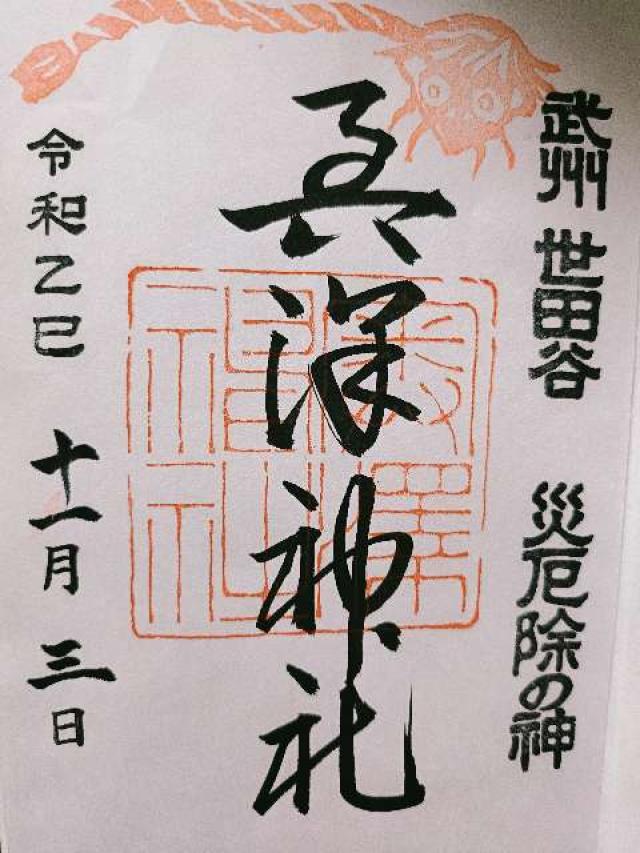 武州 世田谷 災厄除の神
奥澤神社
奥澤
神社
令和乙巳 十一月 三日